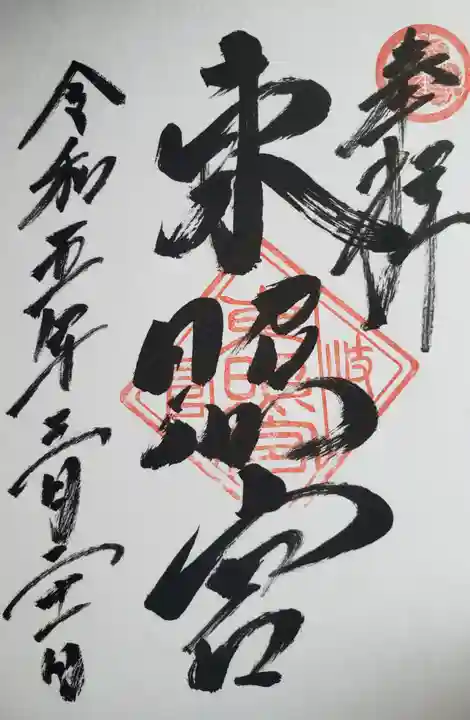 奉拝
東照宮
令和五年三月二十一日